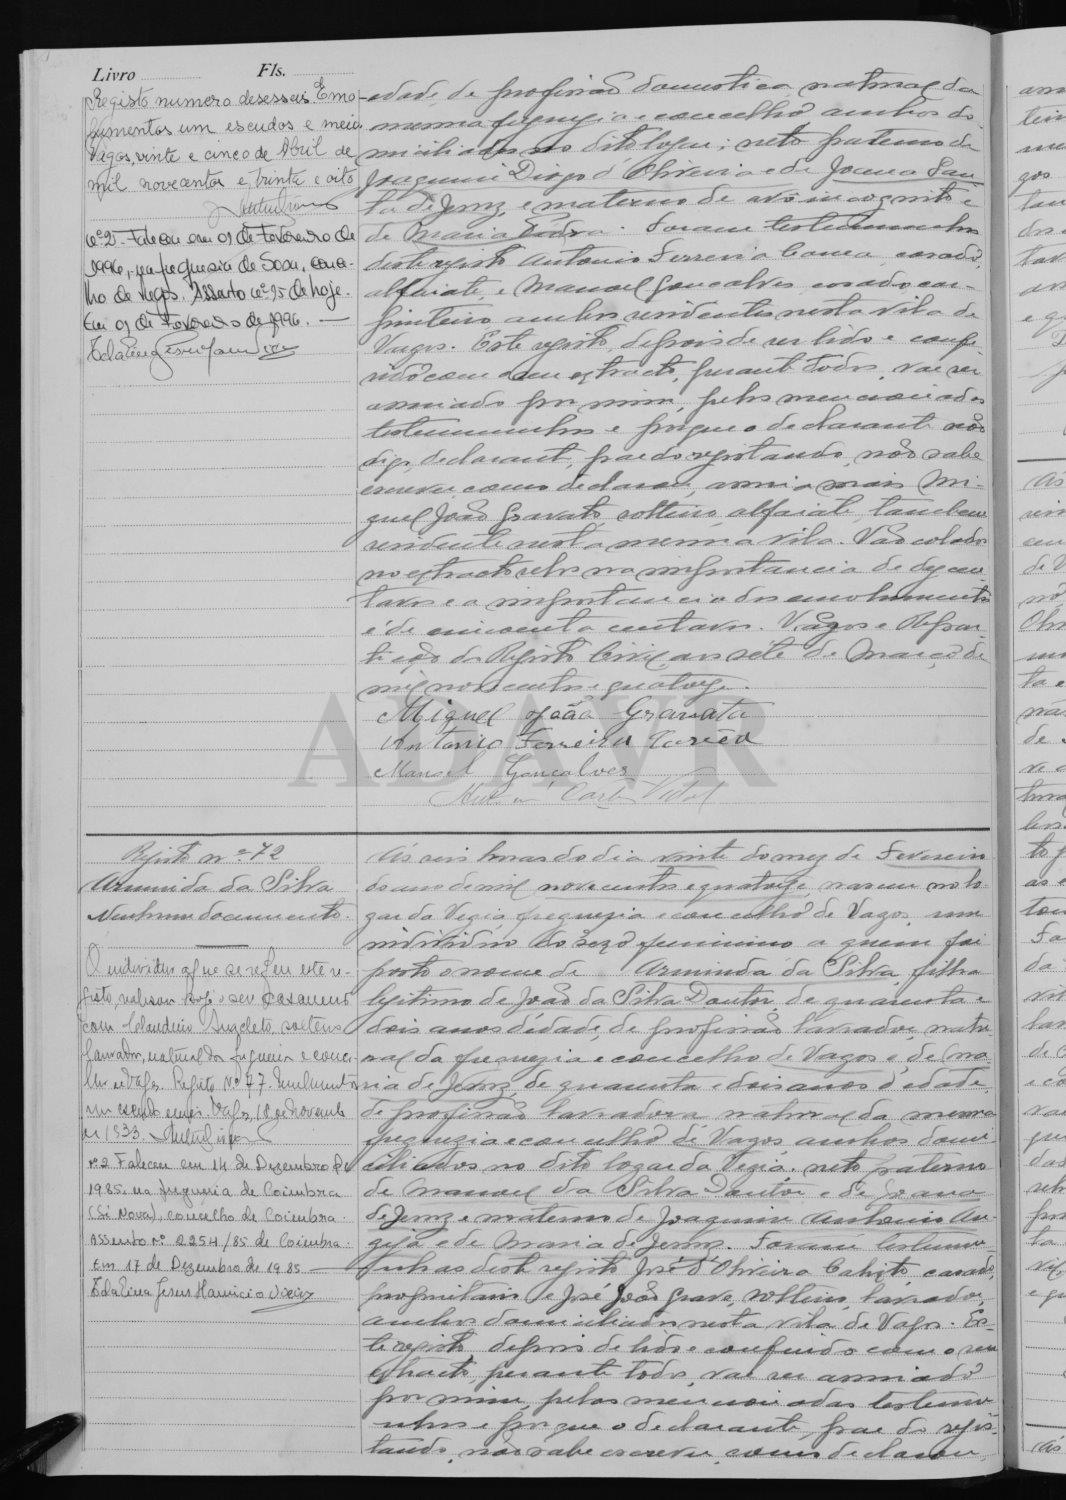 Livro Fls.
Registo numero desesseis. Emo-
lumentos um escudos e meio
Vagos, vinte e cinco de Abril de
mil novecentos e trinta e oito
Nº 2. Faleceu em 01 de Fevereiro de
1996, na freguesia de Sosa, conce-
lho de Vagos. Assento nº 25 de hoje.
Em 01 de Fevereiro de 1996.
edade, de profissão domestica, natural da
mesma freguezia e concelho ambos do-
miciliados no dito logar; neto paterno de
Joaquim Diogo d'Oliveira e de Joana San-
ta de Jesus, e materno de avô incognito e
de Maria Pedra. Foram testemunhas
deste registo Antonio Ferreira Correa casado,
alfaiate, e Manoel Gonçalves casado car-
pinteiro ambos residentes nesta vila de
Vagos. Este registo, depois de ser lido e confe-
rido com o seu extracto, perante todos, vae ser
assinado por mim, pelas mencionadas
testemunhas e porque o declarante não
digo, declarante, pae do registando, não sabe
escrever, como declarou, assina mais Mi-
guel João Gravato, solteiro, alfaiate, tambem
residente nesta mesma vila. Vão colados
no extracto selos na importancia de dez cen-
tavos e a importancia dos emolumentos
é de cincoenta centavos. Vagos e Repar-
tição do Registo Civil aos sete de Março de
mil novecentos e quatorze.
Miguel João Gravato
Antonio Ferreira Correa
Manoel Gonçalves
ADAVR
Registo nº 72
Arminda da Silva
Nenhum documento.
O individuo a que se refere este re-
gisto, realisou hoje o seu casamento
com Claudino Angeleto, solteiro
lavrador, natural da freguesia e conce-
lho de Vagos. Registo Nº 77. Emolumentos
um escudo e meio. Vagos, 10 de novembro
de 1933.
nº 2 Faleceu em 14 de Dezembro de
1985, na freguesia de Coimbra
(Sé Nova), concelho de Coimbra.
Assento nº 2254/85 de Coimbra.
Em 17 de Dezembro de 1985
Ás seis horas do dia vinte do mez de Fevereiro
do ano de mil novecentos e quatorze nasceu no lo-
gar da Vegia freguezia e concelho de Vagos, um
individuo do sexo feminino a quem foi
posto o nome de Arminda da Silva, filha
legitima de João da Silva Doutor, de quarenta e
dois anos d'edade, de profissão lavrador, natu-
ral da freguezia e concelho de Vagos e de Ma-
ria de Jesus, de quarenta e dois anos d'edade,
de profissão lavradora natural da mesma
freguezia e concelho de Vagos, ambos domi-
ciliados no dito logar da Vegia, neto paterno
de Manoel da Silva Doutor e de Joana
de Jesus e materno de Joaquim Antonio An-
geja e de Maria de Jesus. Foram testemu-
nhas deste registo José d'Oliveira casado,
proprietario, e José João Grave, solteiro, lavrador,
ambos domiciliados nesta vila de Vagos. Es-
te registo, depois de lido e conferido com o seu
extracto, perante todos, vae ser assinado
por mim, pelas mencionadas testemu-
nhas e porque o declarante, pae da regis-
tanda, não sabe escrever, como declarou